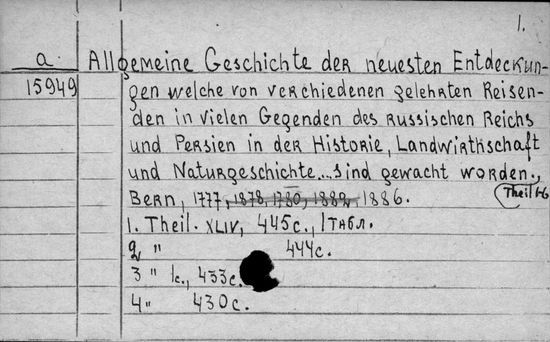 1.
a. Allgemeine Geschichte der neuesten Entdeckun-
15949 gen welche von verchiedenen gelehrten Reisen-
den in vielen Gegenden des russischen Reichs
und Persien in der Historie, Landwirthschaft
und Naturgeschichte... sind gewacht worden.,
Bern, 1777, 1878, 1780, 1882, 1886. Theil 1-6
1. Theil. XLIV, 445c., 1 табл.
2 " 444c.
3 " 1c., 433c.
4 " 430c.